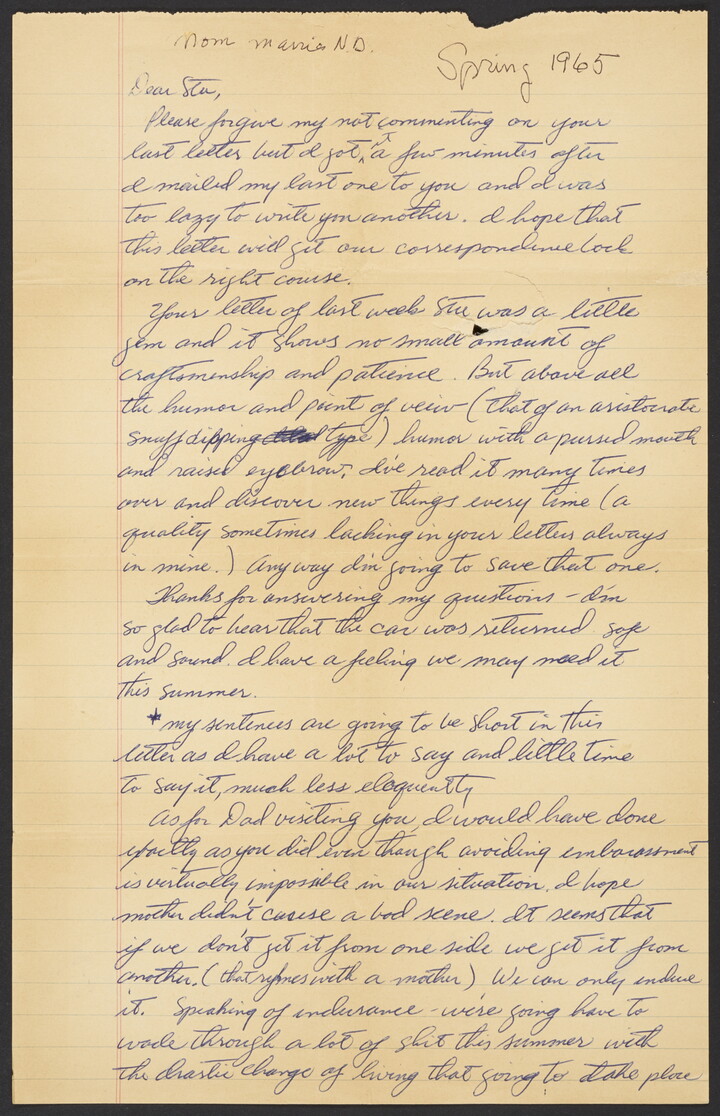 Mom marries N.D.
Spring 1965
Dear Stu,
Please forgive my not commenting on your
last letter but I got it a few minutes after
I mailed my last one to you and I was
too lazy to write you another. I hope that
this letter will get our correspondence back
on the right course.
Your letter of last week Stu was a little
gem and it shows no small amount of
craftsmenship and patience. But above all
the humor and point of veiw (that of an aristocratic
snuff dipping type) humor with a pursed mouth
and raised eyebrow. I've read it many times
over and discover new things every time (a
quality sometimes lacking in your letters always
in mine.) Anyway I'm going to save that one.
Thanks for answering my questions - I'm
so glad to hear that the car was returned safe
and sound. I have a feeling we may need it
this summer.
* my sentences are going to be short in this
letter as I have a lot to say and little time
to say it, much less eloquently
As for Dad visiting you, I would have done
exactly as you did even though avoiding embarassment
is virtually impossible in our situation. I hope
mother didn't cause a bad scene. It seems that
if we don't get it from one side we get it from
another. (that rymes with a mother) We can only endure
it. Speaking of endurance - we're going have to
wade through a lot of shit this summer with
the drastic change of living that going to take place